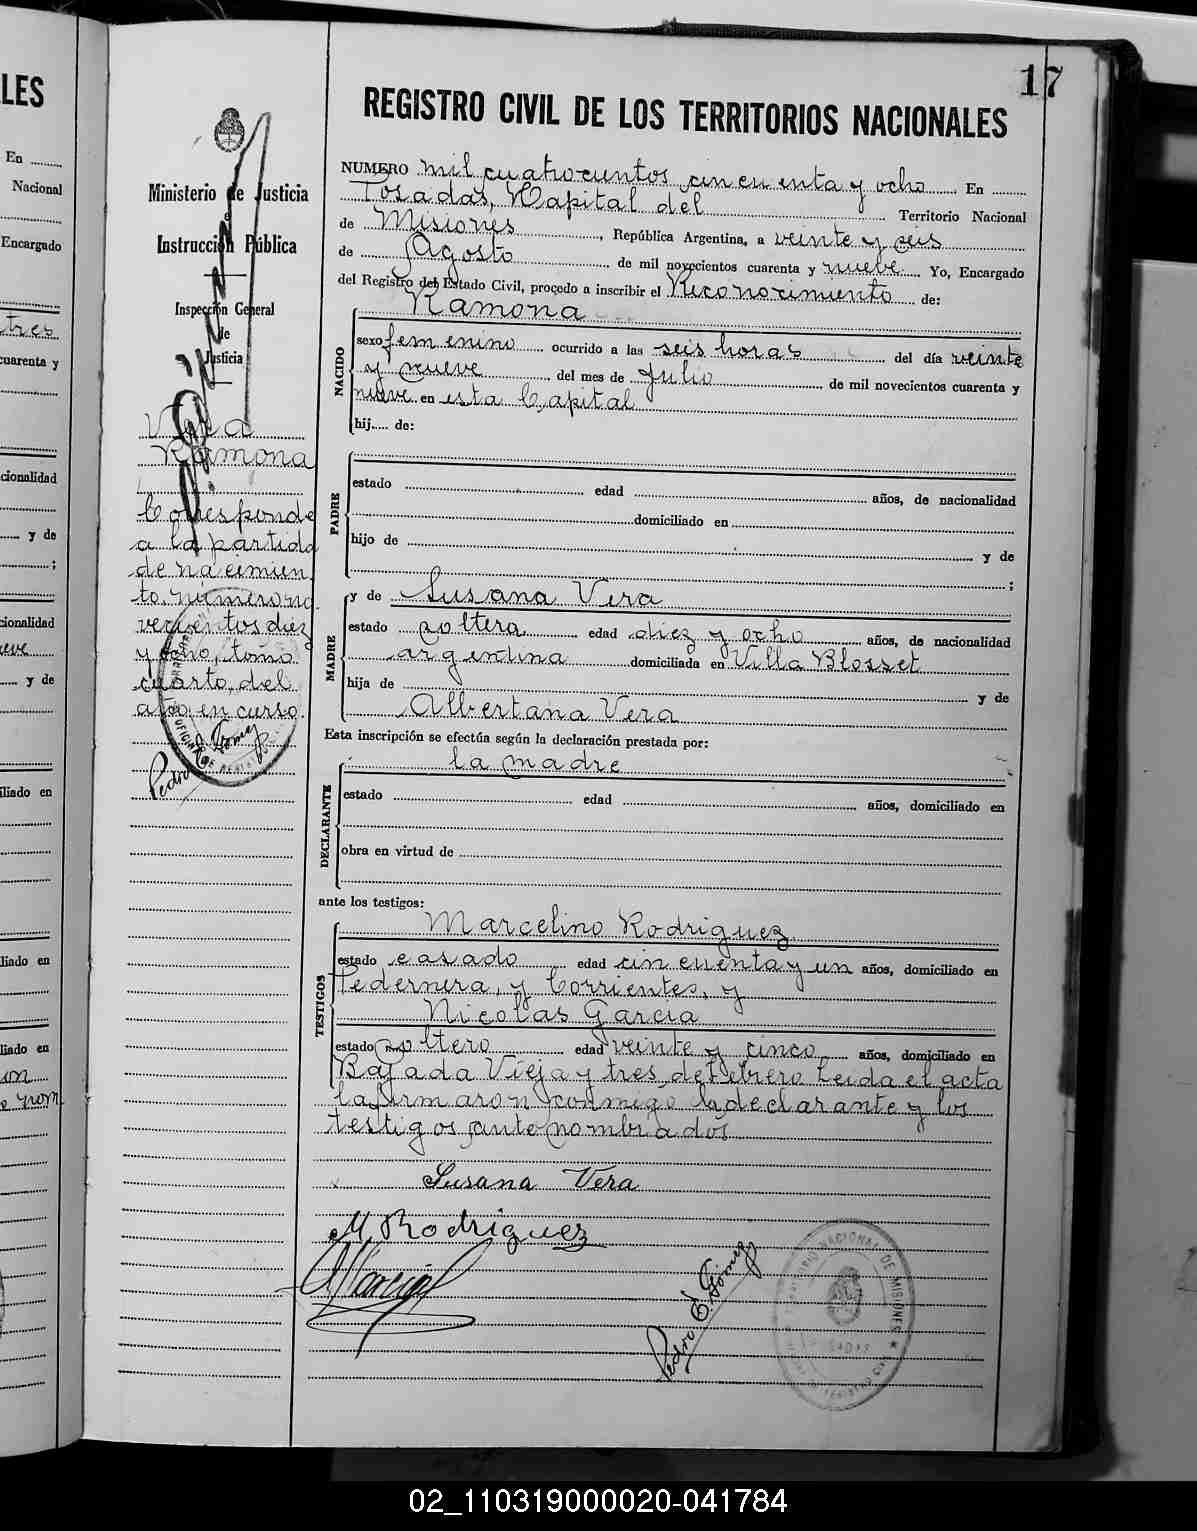 LES
17
REGISTRO CIVIL DE LOS TERRITORIOS NACIONALES
Ministerio de Justicia
e
Instrucción Pública
Inspección General
de
Justicia
Vera
Ramona
Corresponde
a la partida
de nacimien
to, número no
vecientos diez
y ocho, tomo
cuarto, del
año en curso.
Pedro E. Gómez
NUMERO mil cuatrocientos cincuenta y ocho En
Posadas, Capital del Territorio Nacional
de Misiones, República Argentina, a veinte y seis
de Agosto de mil novecientos cuarenta y nueve Yo, Encargado
del Registro del Estado Civil, procedo a inscribir el Reconocimiento de:
NACIDO
Ramona
sexo femenino ocurrido a las seis horas del día veinte
y nueve del mes de Julio de mil novecientos cuarenta y
nueve en esta Capital
hij..... de:
PADRE
estado edad años, de nacionalidad
domiciliado en
hijo de y de
;
MADRE
y de Susana Vera
estado soltera edad diez y ocho años, de nacionalidad
argentina domiciliada en Villa Blosset
hija de y de
Albertana Vera
Esta inscripción se efectúa según la declaración prestada por:
DECLARANTE
la madre
estado edad años, domiciliado en
obra en virtud de
ante los testigos:
TESTIGOS
Marcelino Rodriguez
estado casado edad cincuenta y un años, domiciliado en
Pedernera, y Corrientes, y
Nicolas Garcia
estado soltero edad veinte y cinco años, domiciliado en
Bajada Vieja y tres de Febrero Leida el acta
la firmaron conmigo la declarante y los
testigos antenombrados
Susana Vera
M Rodriguez
Pedro E. Gómez
TERRITORIO NACIONAL DE MISIONES
POSADAS
En
Nacional
Encargado
tres
cuarenta y
cionalidad
y de
;
cionalidad
y de
iliado en
liado en
liado en
02_110319000020-041784